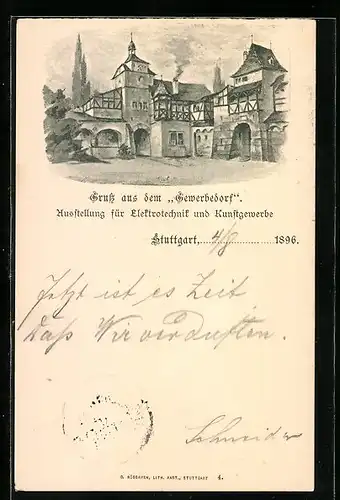 Gruß aus dem „Gewerbedorf".
Ausstellung für Elektrotechnik und Kunstgewerbe
Stuttgart, 4/8 1896.
Jetzt ist es Zeit
Daß Wir verduften.
Schneider
LITH. ANST., STUTTGART 4.